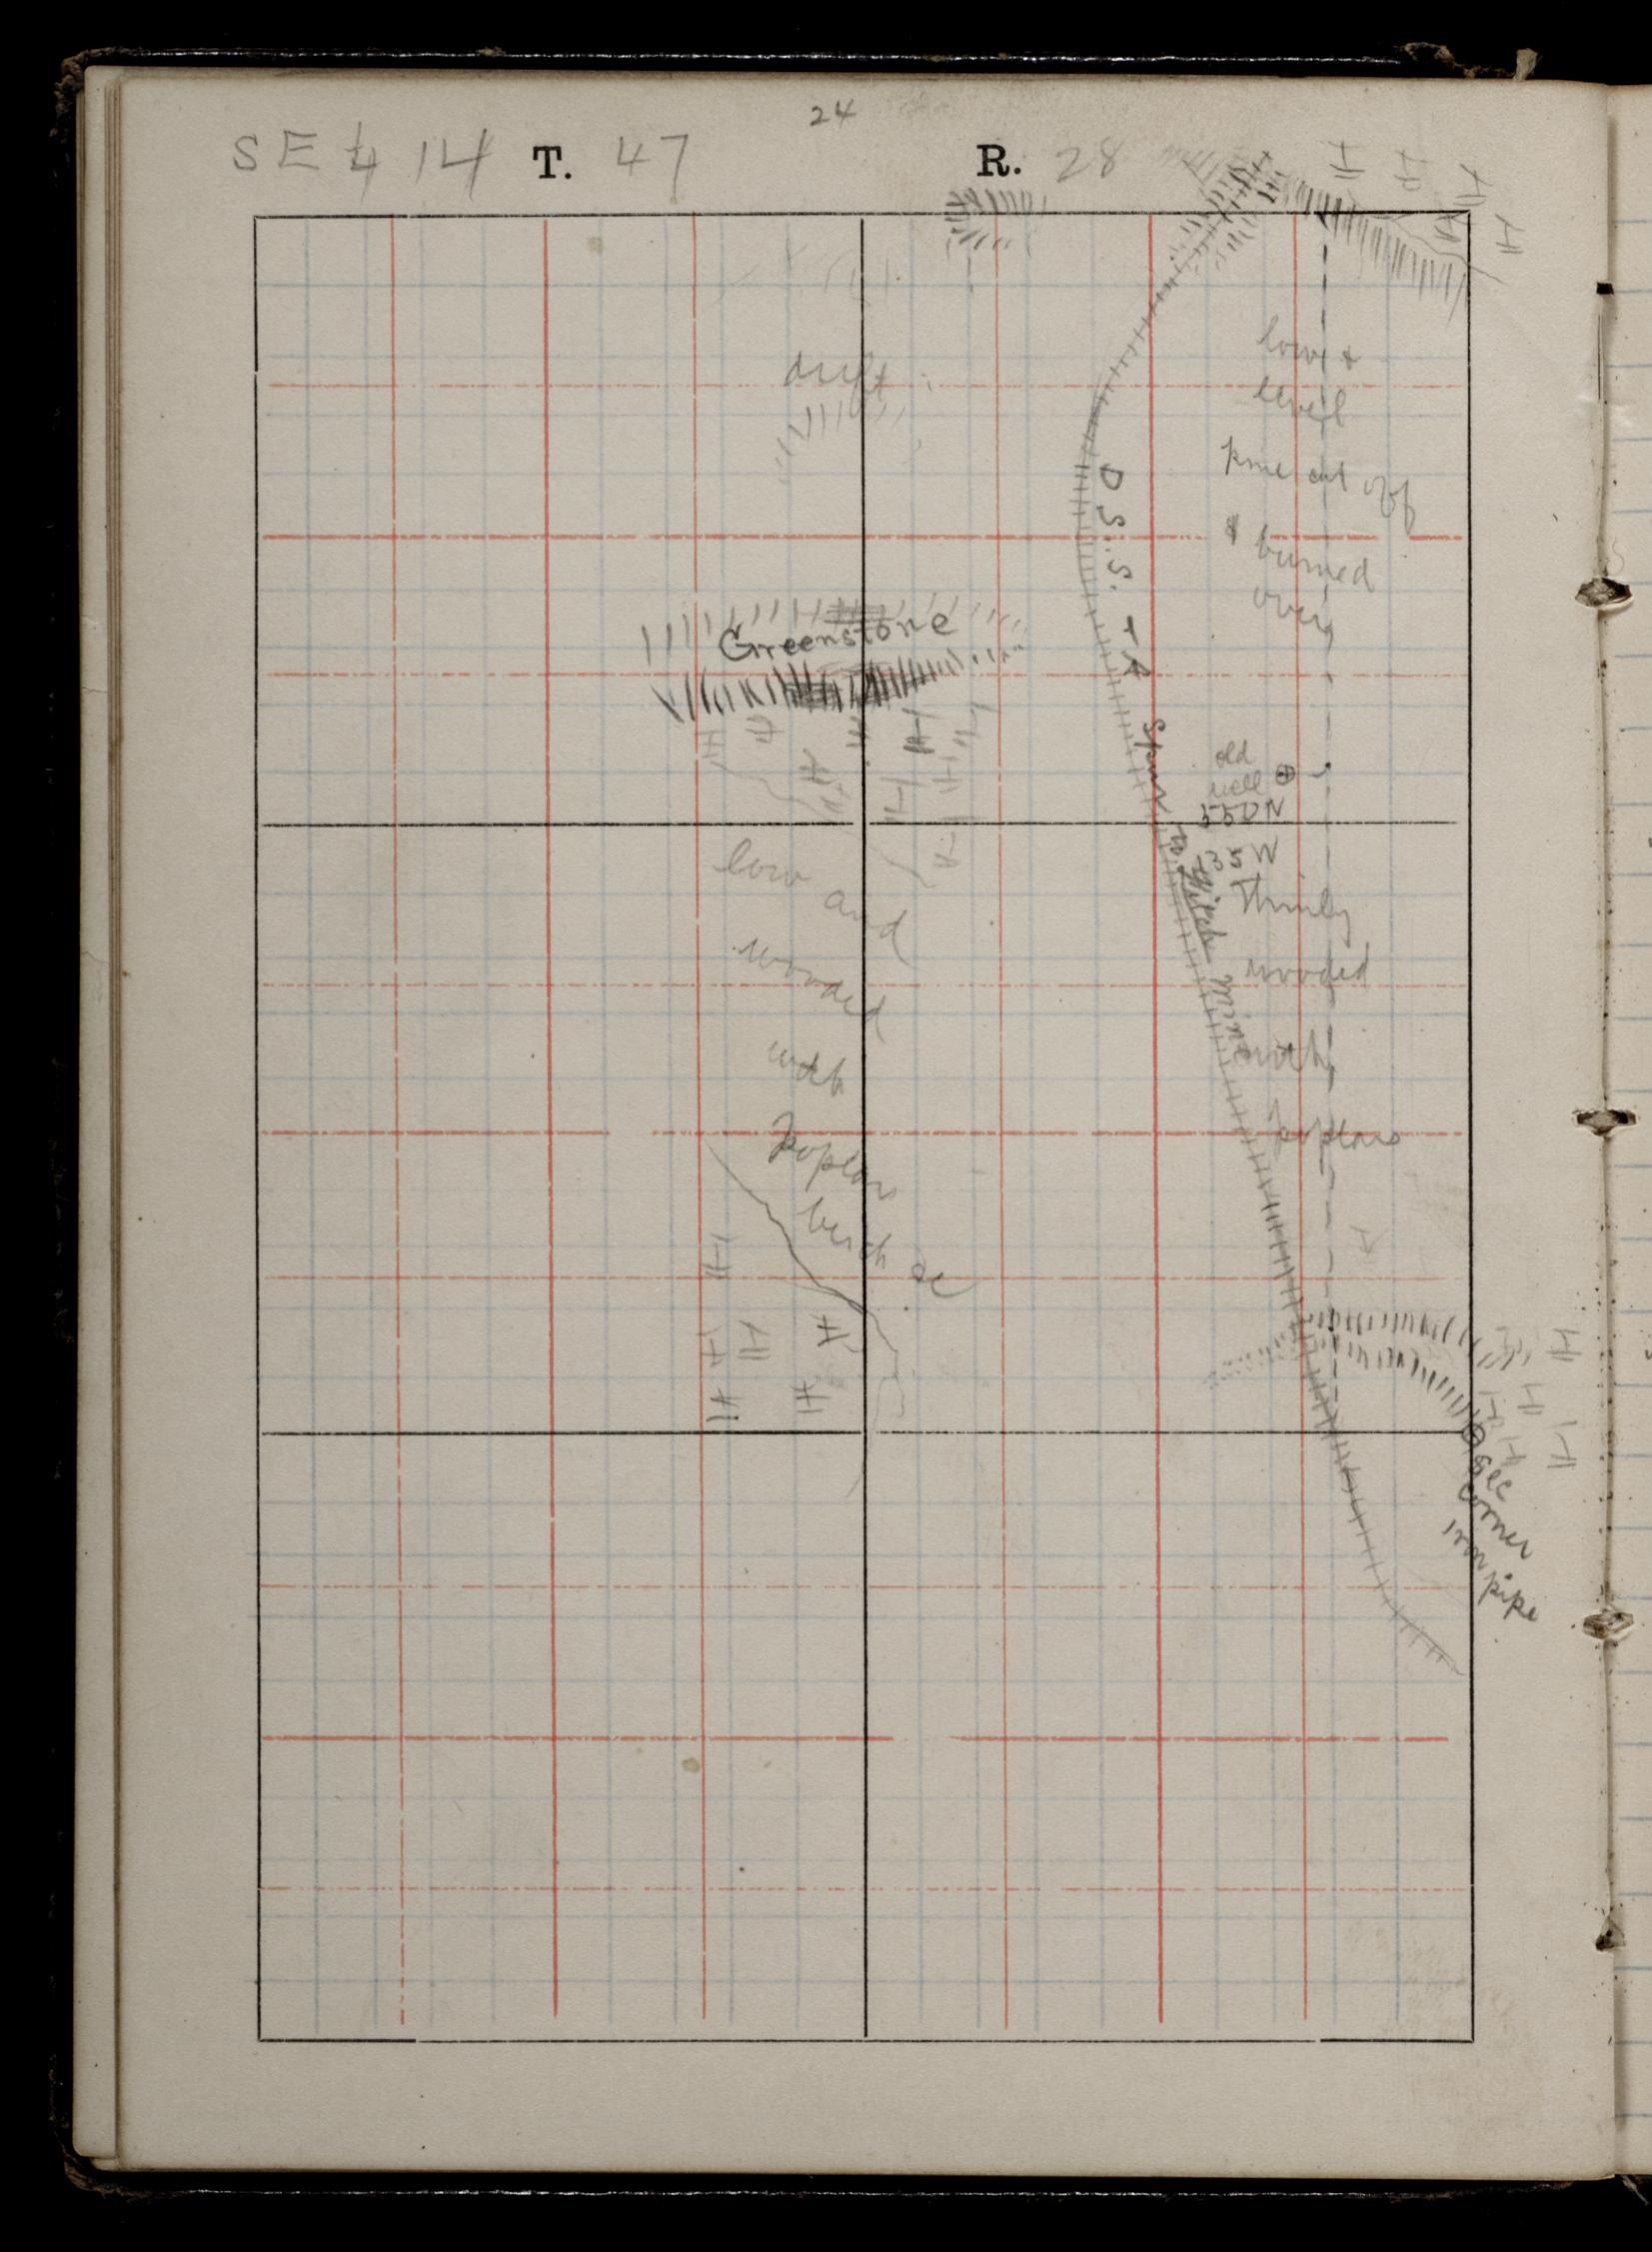 24
SE ¼ 14 T. 47 R. 28
drift
Greenstone
low and
wooded
with
poplar
birch &c
D. S. S. & A
Spur
to Mitch mine
low &
level
pine cut off
& burned
over
old
well ⊕
550 N
35 W
Thinly
wooded
with
poplars
Sec
corner
iron pipe